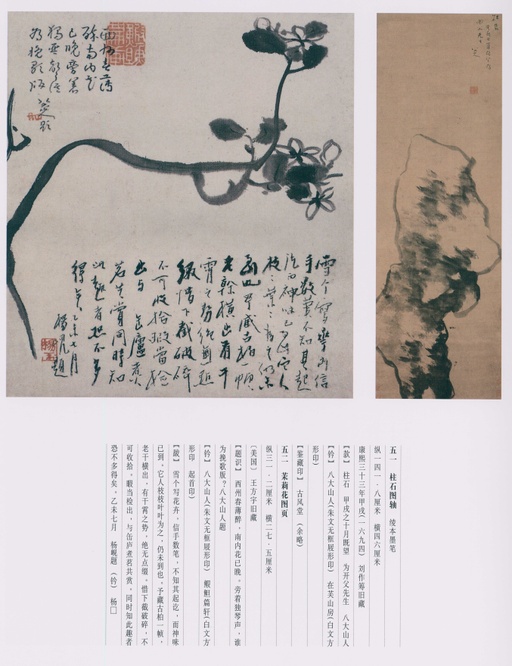 西州春薄
醉南内花
已晚旁著
独琴聲誰
为挽歌版
八大山人題
雪个寫華卉信
手数筆不知其起
讫而神味已到它人
枝枝葉葉為之仍未
到也予藏古柏一幀
老榦横出有干
霄之勢絶無點
綴惜下截破碎
不可收拾暇當檢
出与缶廬煮
茗共賞同時知
此趣者恐不多
得矣乙未七月
楊峴題
五一 柱石图轴 绫本墨笔
纵一四一·八厘米 横四六厘米
康熙三十三年甲戌(一六九四) 刘作筹旧藏
〔款〕 柱石 甲戌之十月既望 为开父先生 八大山人
〔钤〕 八大山人(朱文无框屐形印) 在芙山房(白文方
形印)
〔鉴藏印〕 古风堂 (余略)
五二 茉莉花图页
纵三一·二厘米 横二七·五厘米
(美国) 王方宇旧藏
〔题识〕 西州春薄醉,南内花已晚,旁着独琴声,谁
为挽歌版?八大山人题
〔钤〕 八大山人(朱文无框屐形印) 篇轩(白文方
形印 起首印)
〔跋〕 雪个写花卉,信手数笔,不知其起讫,而神味
已到,它人枝枝叶叶为之,仍未到也。予藏古柏一帧,
老干横出,有干霄之势,绝无点缀,惜下截破碎,不
可收拾,暇当检出,与缶庐煮茗共赏。同时知此趣者
恐不多得矣,乙未七月 杨岘题 (钤) 杨□